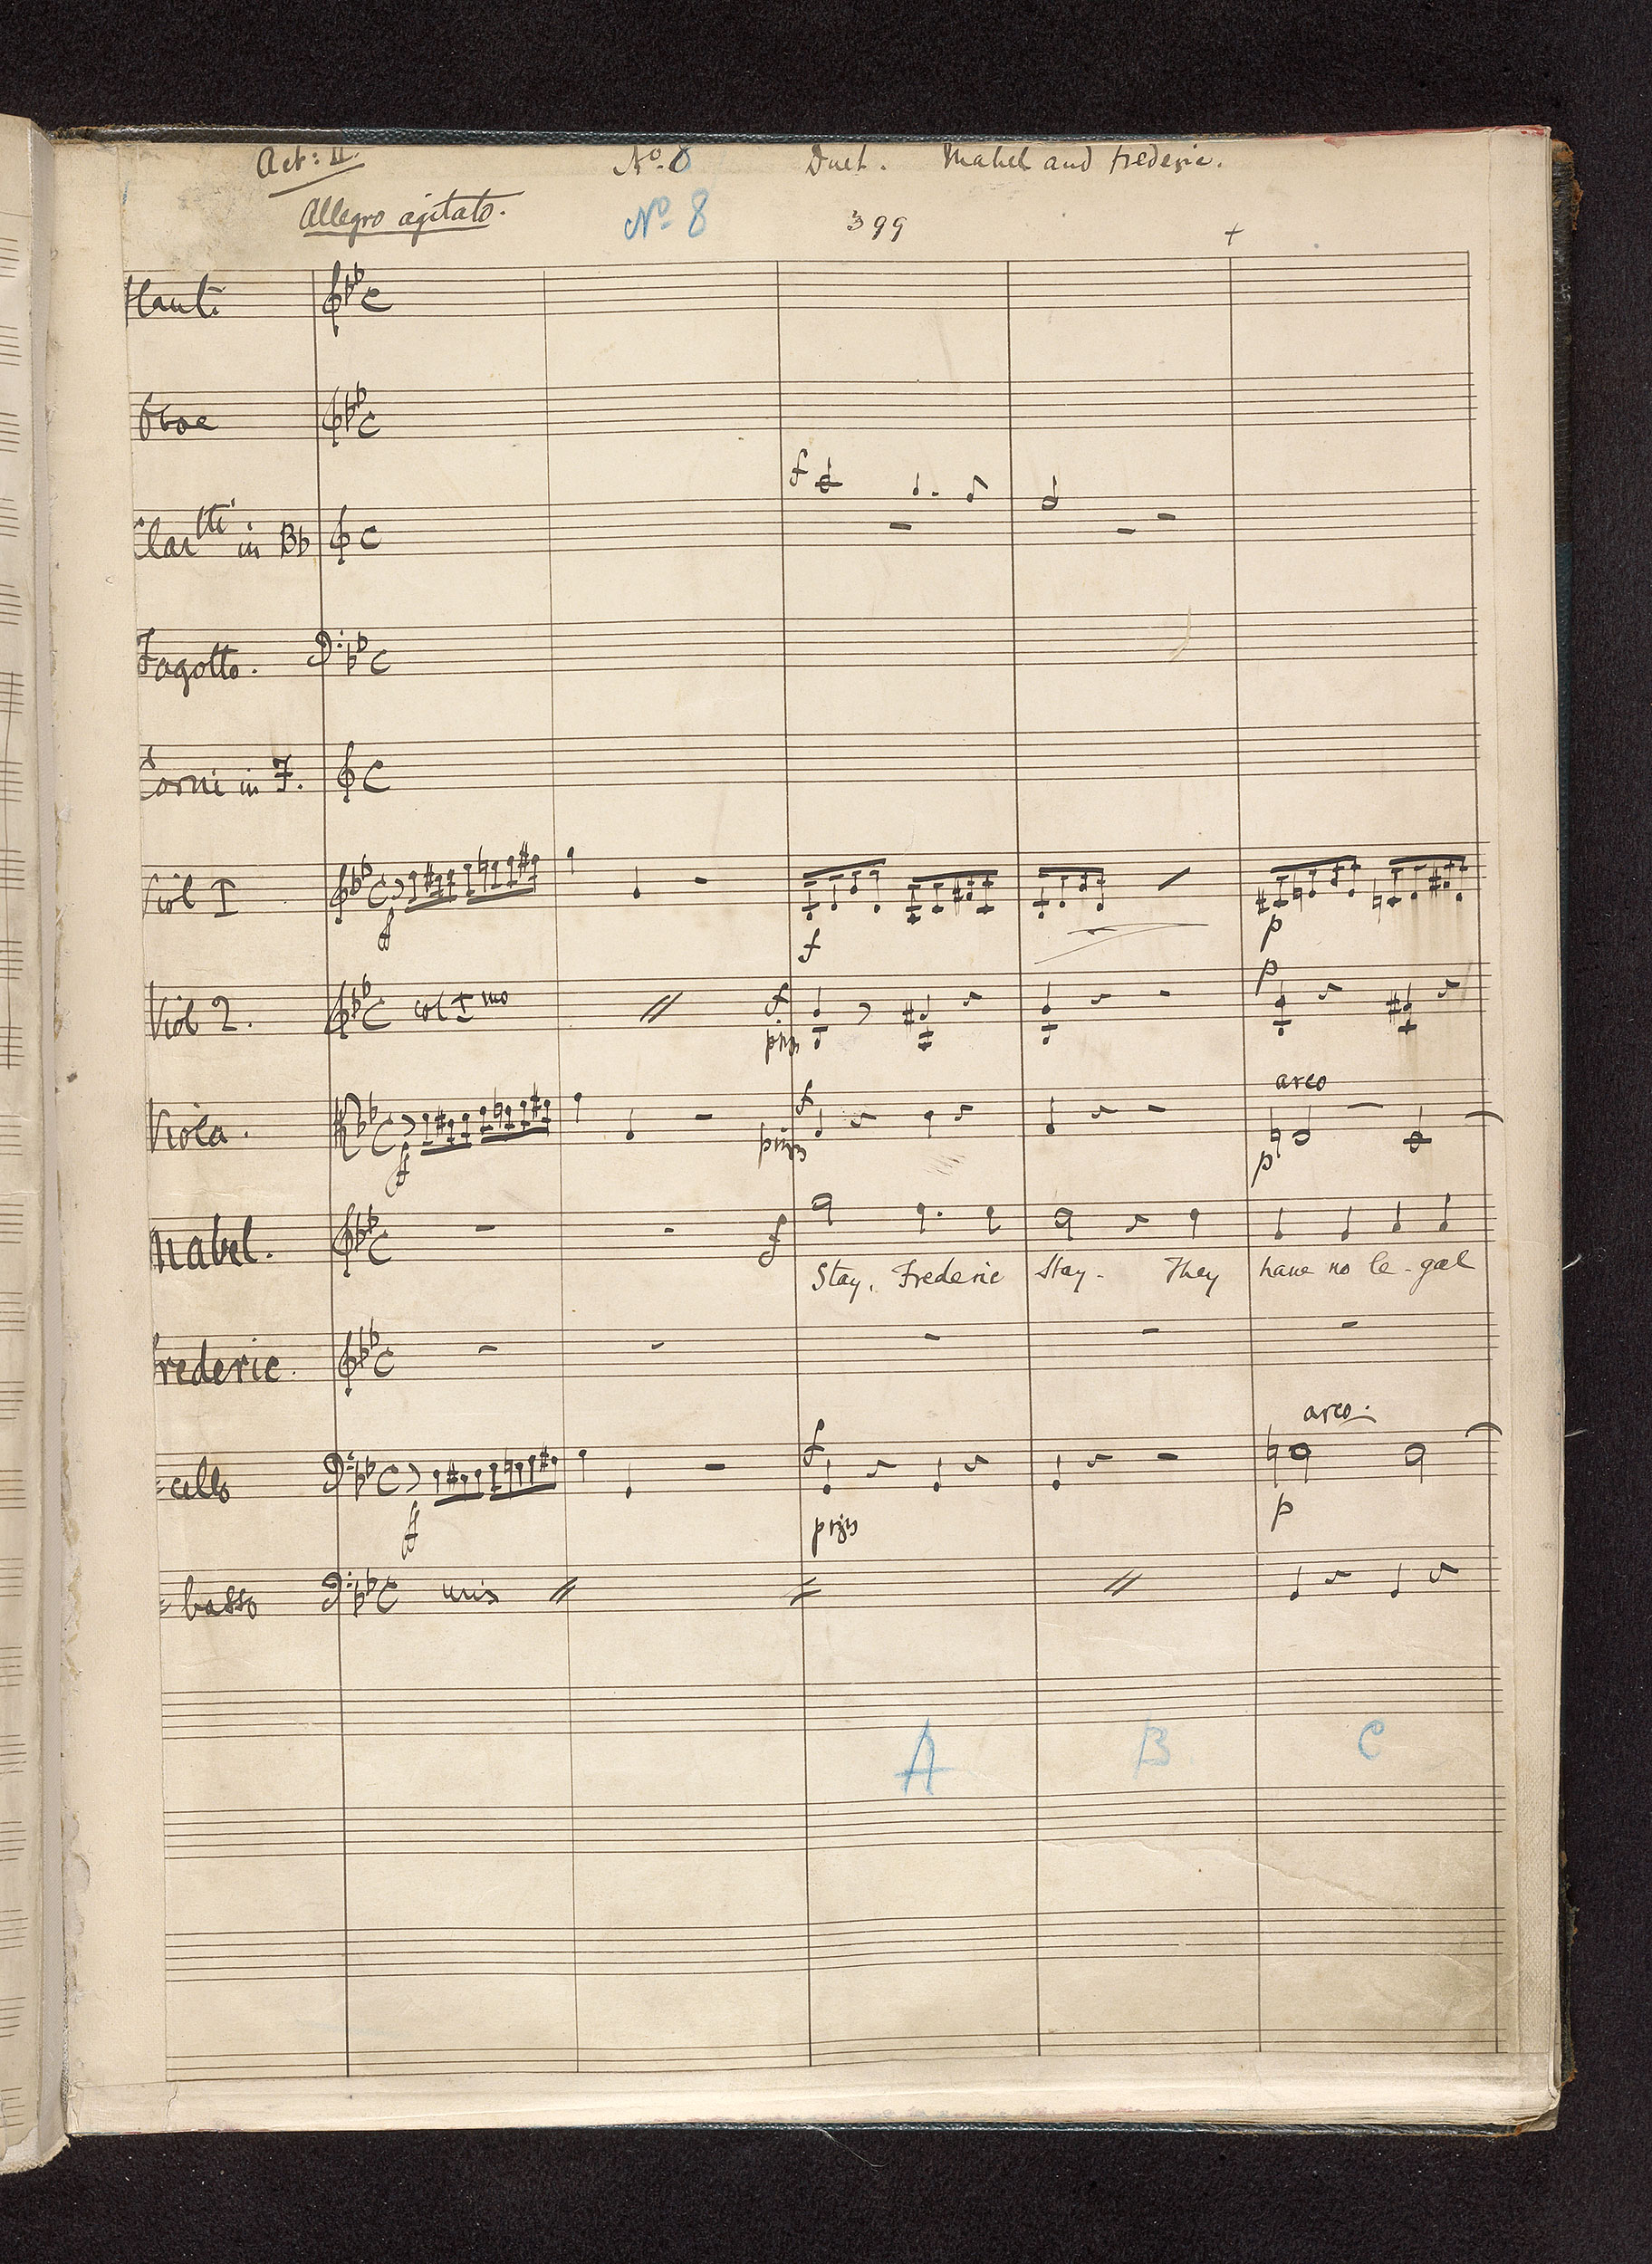 Act: II. No. 8 Duet. Mabel and Frederic.
Allegro agitato. No 8 399 +
Flauti
Oboe
f
Clartti in Bb C
Fagotto. C
Corni in F. C
Viol I C
ff f p
Viol 2. C col Imo f pizz p
Viola. C f arco
ff pizz p
Mabel. C f
Stay, Frederic stay. They have no le-gal
Frederic. C
arco.
cello C f
ff pizz p
basso C unis
A B C